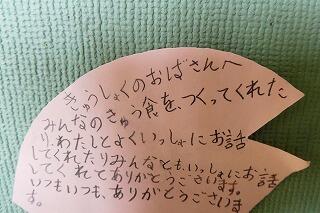 きゅうしょくのおばさんへ
みんなのきゅう食を、つくってくれた
り、わたしとよくいっしょにお話
してくれたりみんなとも、いっしょにお話
してくれてありがとうございます。
いつもいつも、ありがとうございま
す。